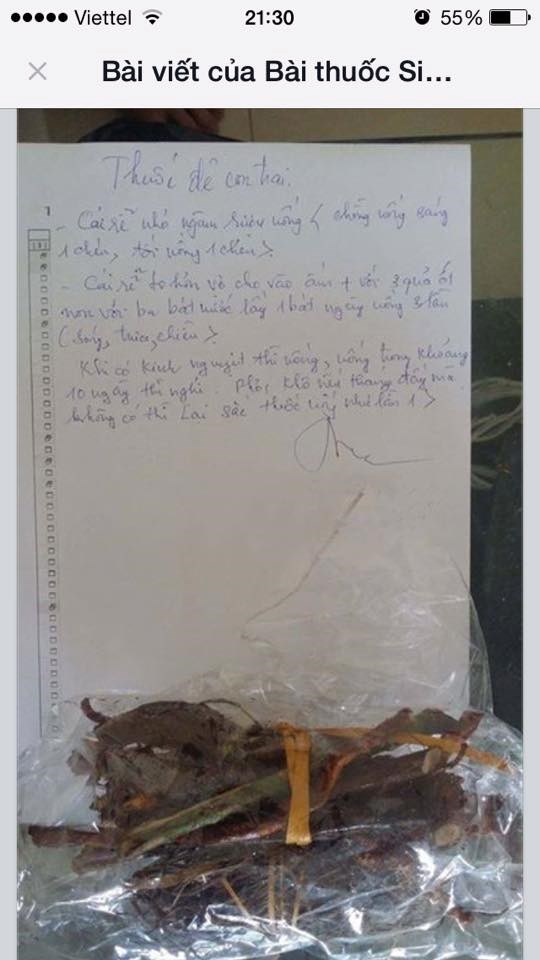 Viettel 21:30 55%
Bài viết của Bài thuốc Si...
Thuốc đẻ con trai.
- Cái rễ nhỏ ngâm rượu uống < chồng uống sáng
1 chén, tối uống 1 chén>.
- Cái rễ to hơn vò cho vào ấm + với 3 quả ớt
non với ba bát nước lấy 1 bát ngày uống 3 lần
(sáng, trưa, chiều>
Khi có kinh nguyệt thì uống, uống trong khoảng
10 ngày thì nghỉ. khô nếu tháng đấy mà
không có thì Lại sắc thuốc uống như lần 1>